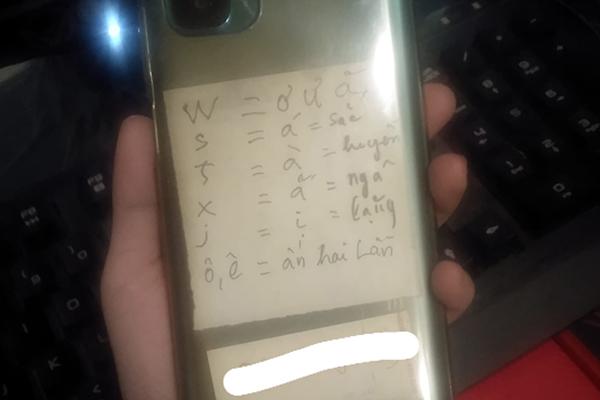 W = ơ ư ă,
s = á = sắc
f = à = huyền
x = ã = ngã
j = ị = nặng
ô, ê = ấn hai lần